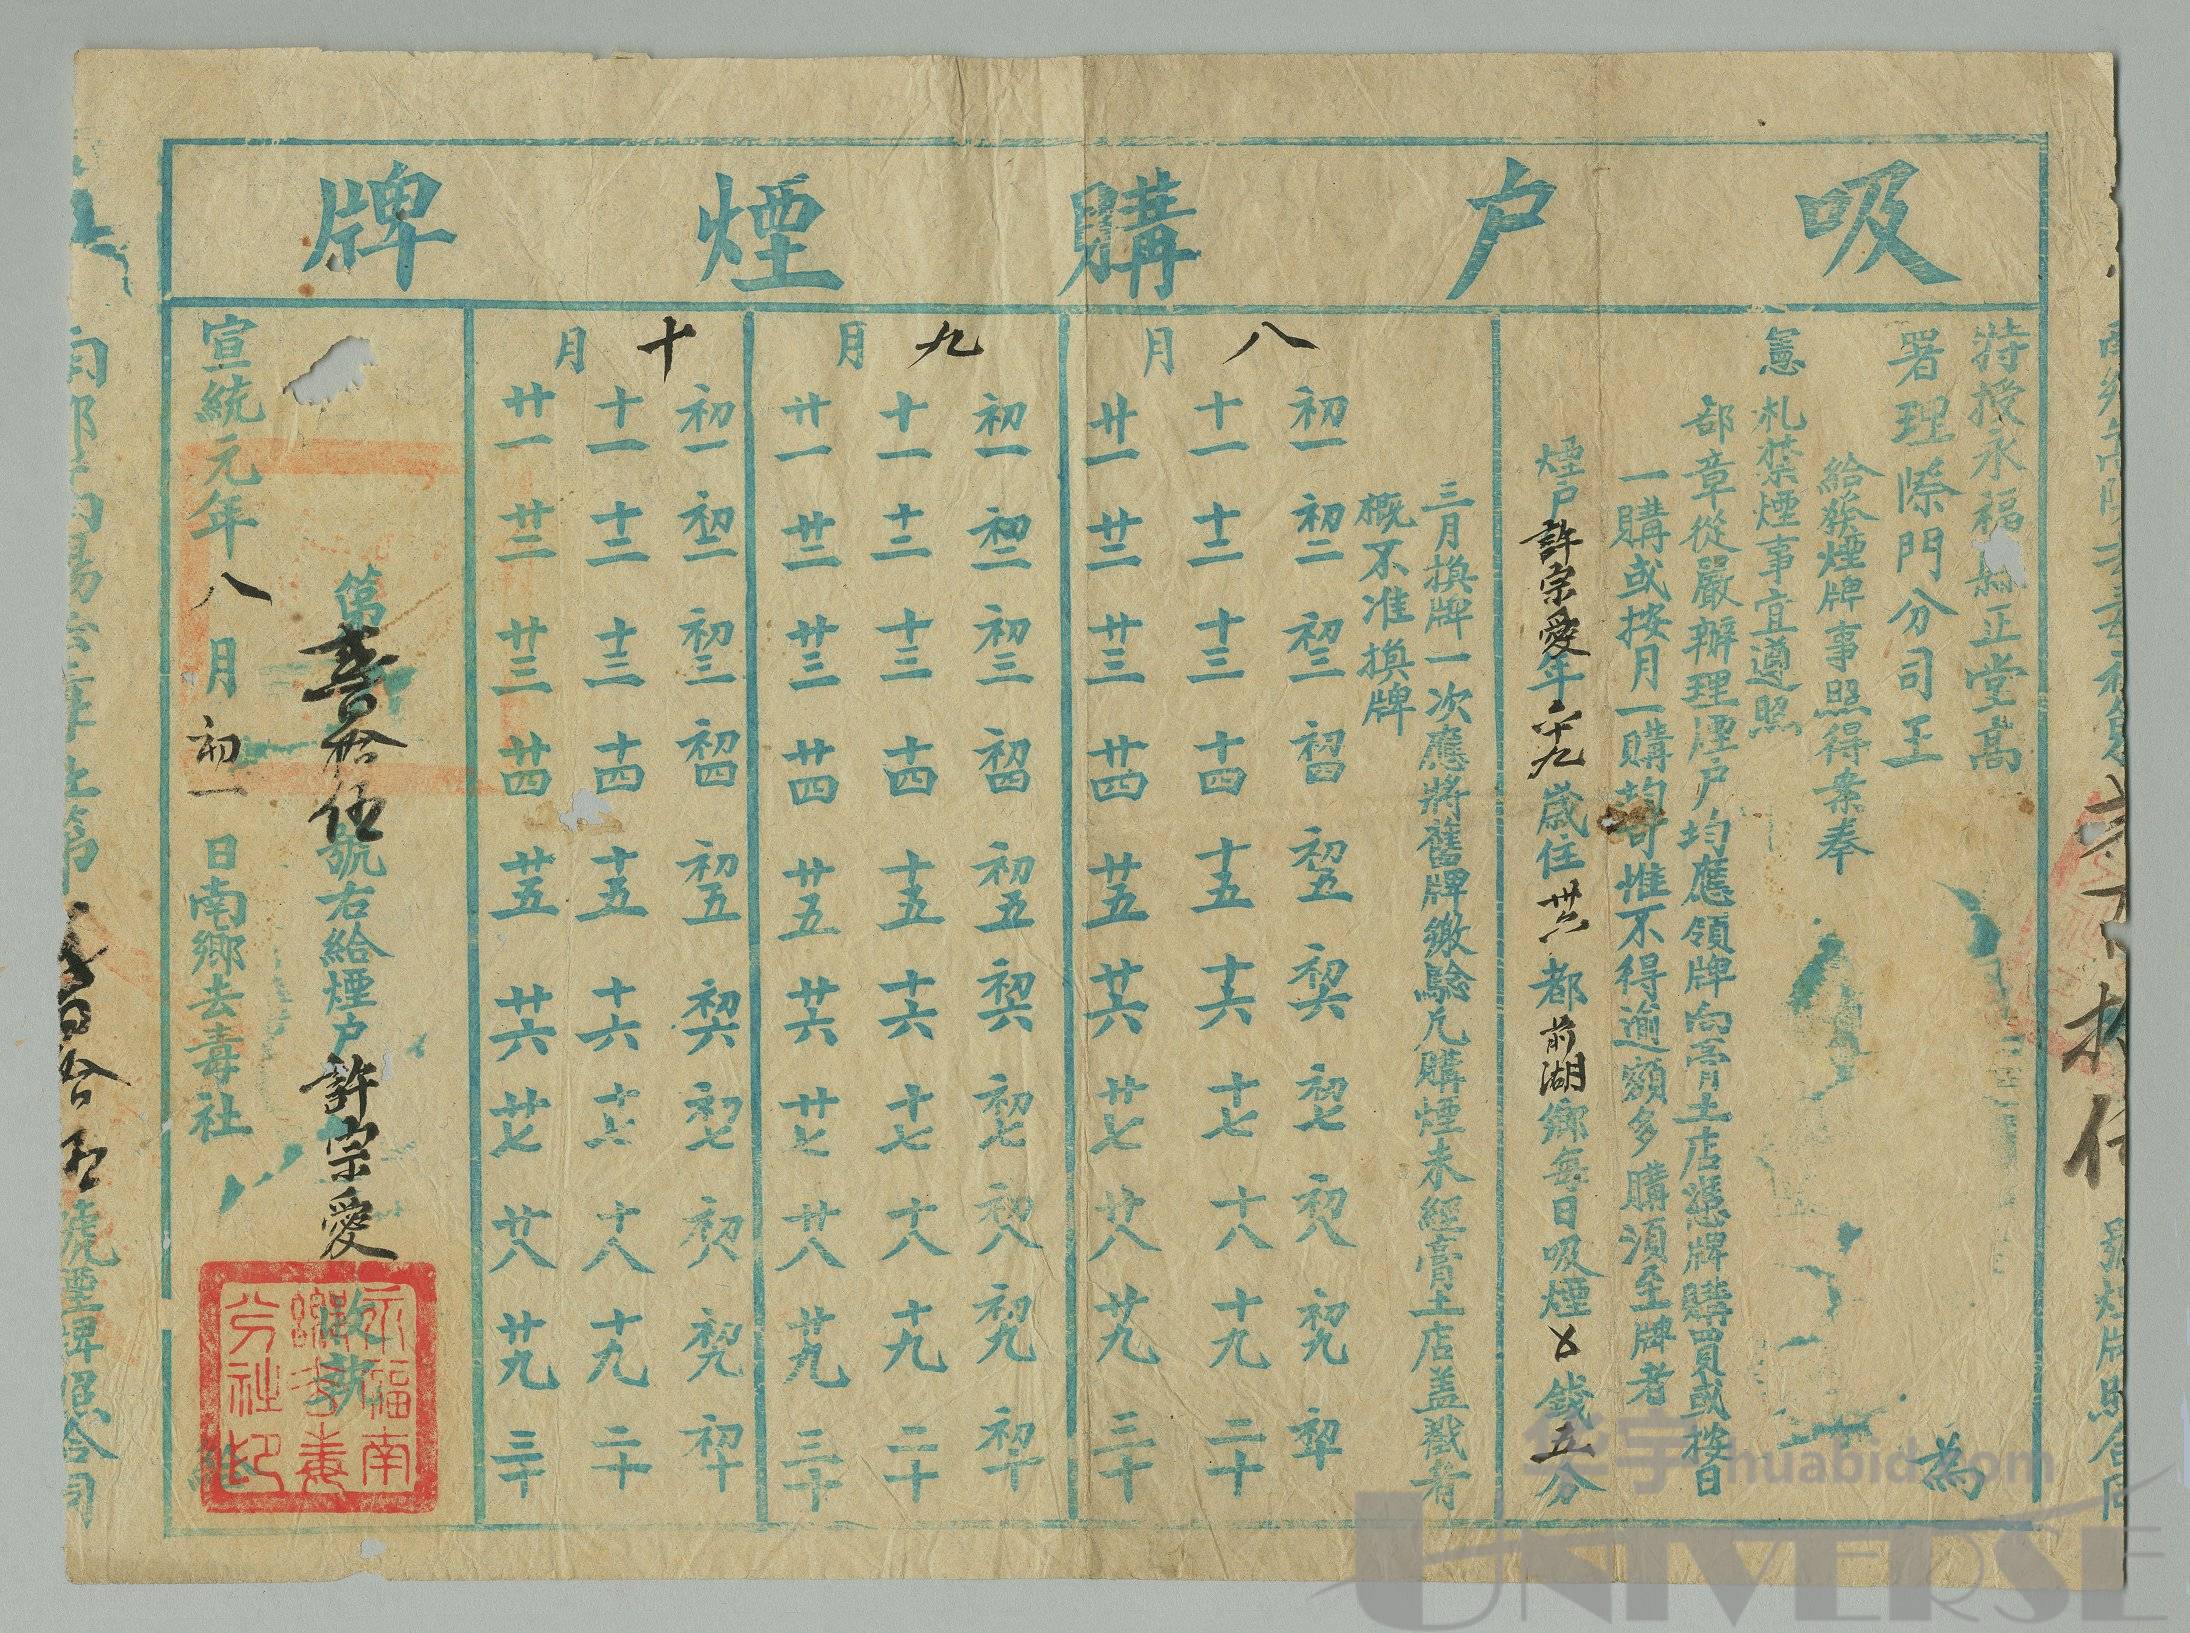 吸戶購煙牌
特授永福縣正堂萬
署理際門分司王 為
給發煙牌事照得案奉
憲札禁煙事宜遵照
部章從嚴辦理煙戶均應領牌向膏土店憑牌購買或按日
一購或按月一購均可惟不得逾額多購須至牌者
煙戶許宗愛年六十九歲住廿六都前湖鄉每日吸煙〤錢五分
三月換牌一次應將舊牌繳驗凡購煙未經膏土店蓋戳者
概不准換牌
八月
初一 初二 初三 初四 初五 初六 初七 初八 初九 初十
十一 十二 十三 十四 十五 十六 十七 十八 十九 二十
廿一 廿二 廿三 廿四 廿五 廿六 廿七 廿八 廿九 三十
九月
初一 初二 初三 初四 初五 初六 初七 初八 初九 初十
十一 十二 十三 十四 十五 十六 十七 十八 十九 二十
廿一 廿二 廿三 廿四 廿五 廿六 廿七 廿八 廿九 三十
十月
初一 初二 初三 初四 初五 初六 初七 初八 初九 初十
十一 十二 十三 十四 十五 十六 十六 十八 十九 二十
廿一 廿二 廿三 廿四 廿五 廿六 廿七 廿八 廿九 三十
第壹拾伍號右給煙戶許宗愛收執
宣統元年八月初一日南鄉去毒社給
永福南
去毒
分社印
號煙牌照合同
华宇 huabid.com
UNIVERSE